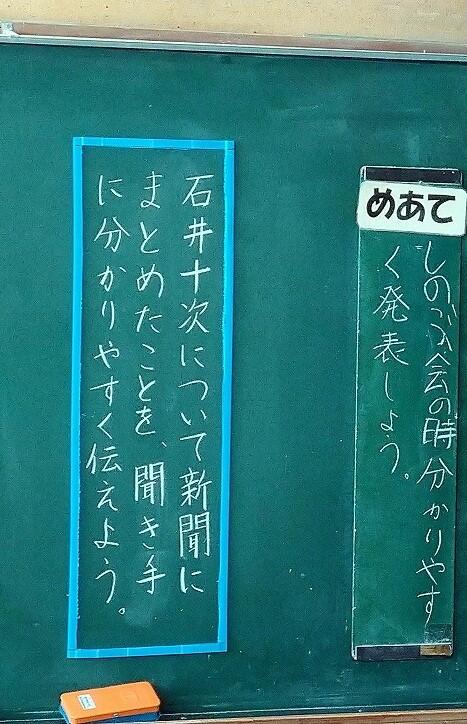 めあて
しのぶ会の時分かりやす
く発表しよう。
石井十次について新聞に
まとめたことを、聞き手
に分かりやすく伝えよう。